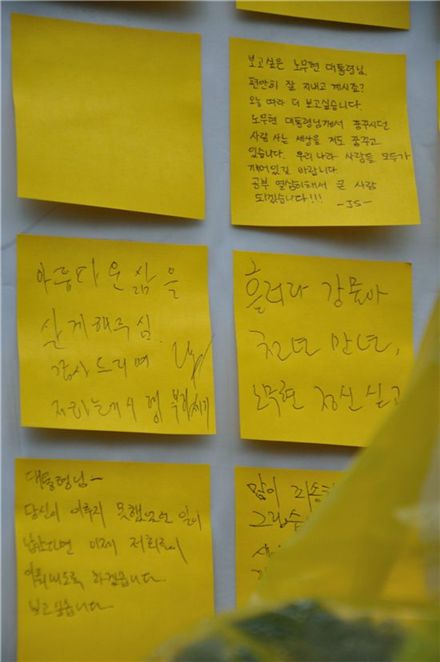 보고싶은 노무현 대통령님
편안히 잘 지내고 계시죠?
오늘 따라 더 보고싶습니다.
노무현 대통령님께서 꿈꾸시던
사람 사는 세상을 저도 꿈꾸고
있습니다. 우리 나라 사람들 모두가
깨어있길 바랍니다
공부 열심히해서 큰 사람
되겠습니다!!! -JS-
아름다운 삶을
살게해주심
감사드리며
흘러라 강물아
천년 만년,
노무현 정신 싣고
대통령님~
당신이 이루지 못했던 일이
남았다면 이제 저희들이
이뤄내도록 하겠습니다.
보고싶습니다.
많이 죄송
그립습